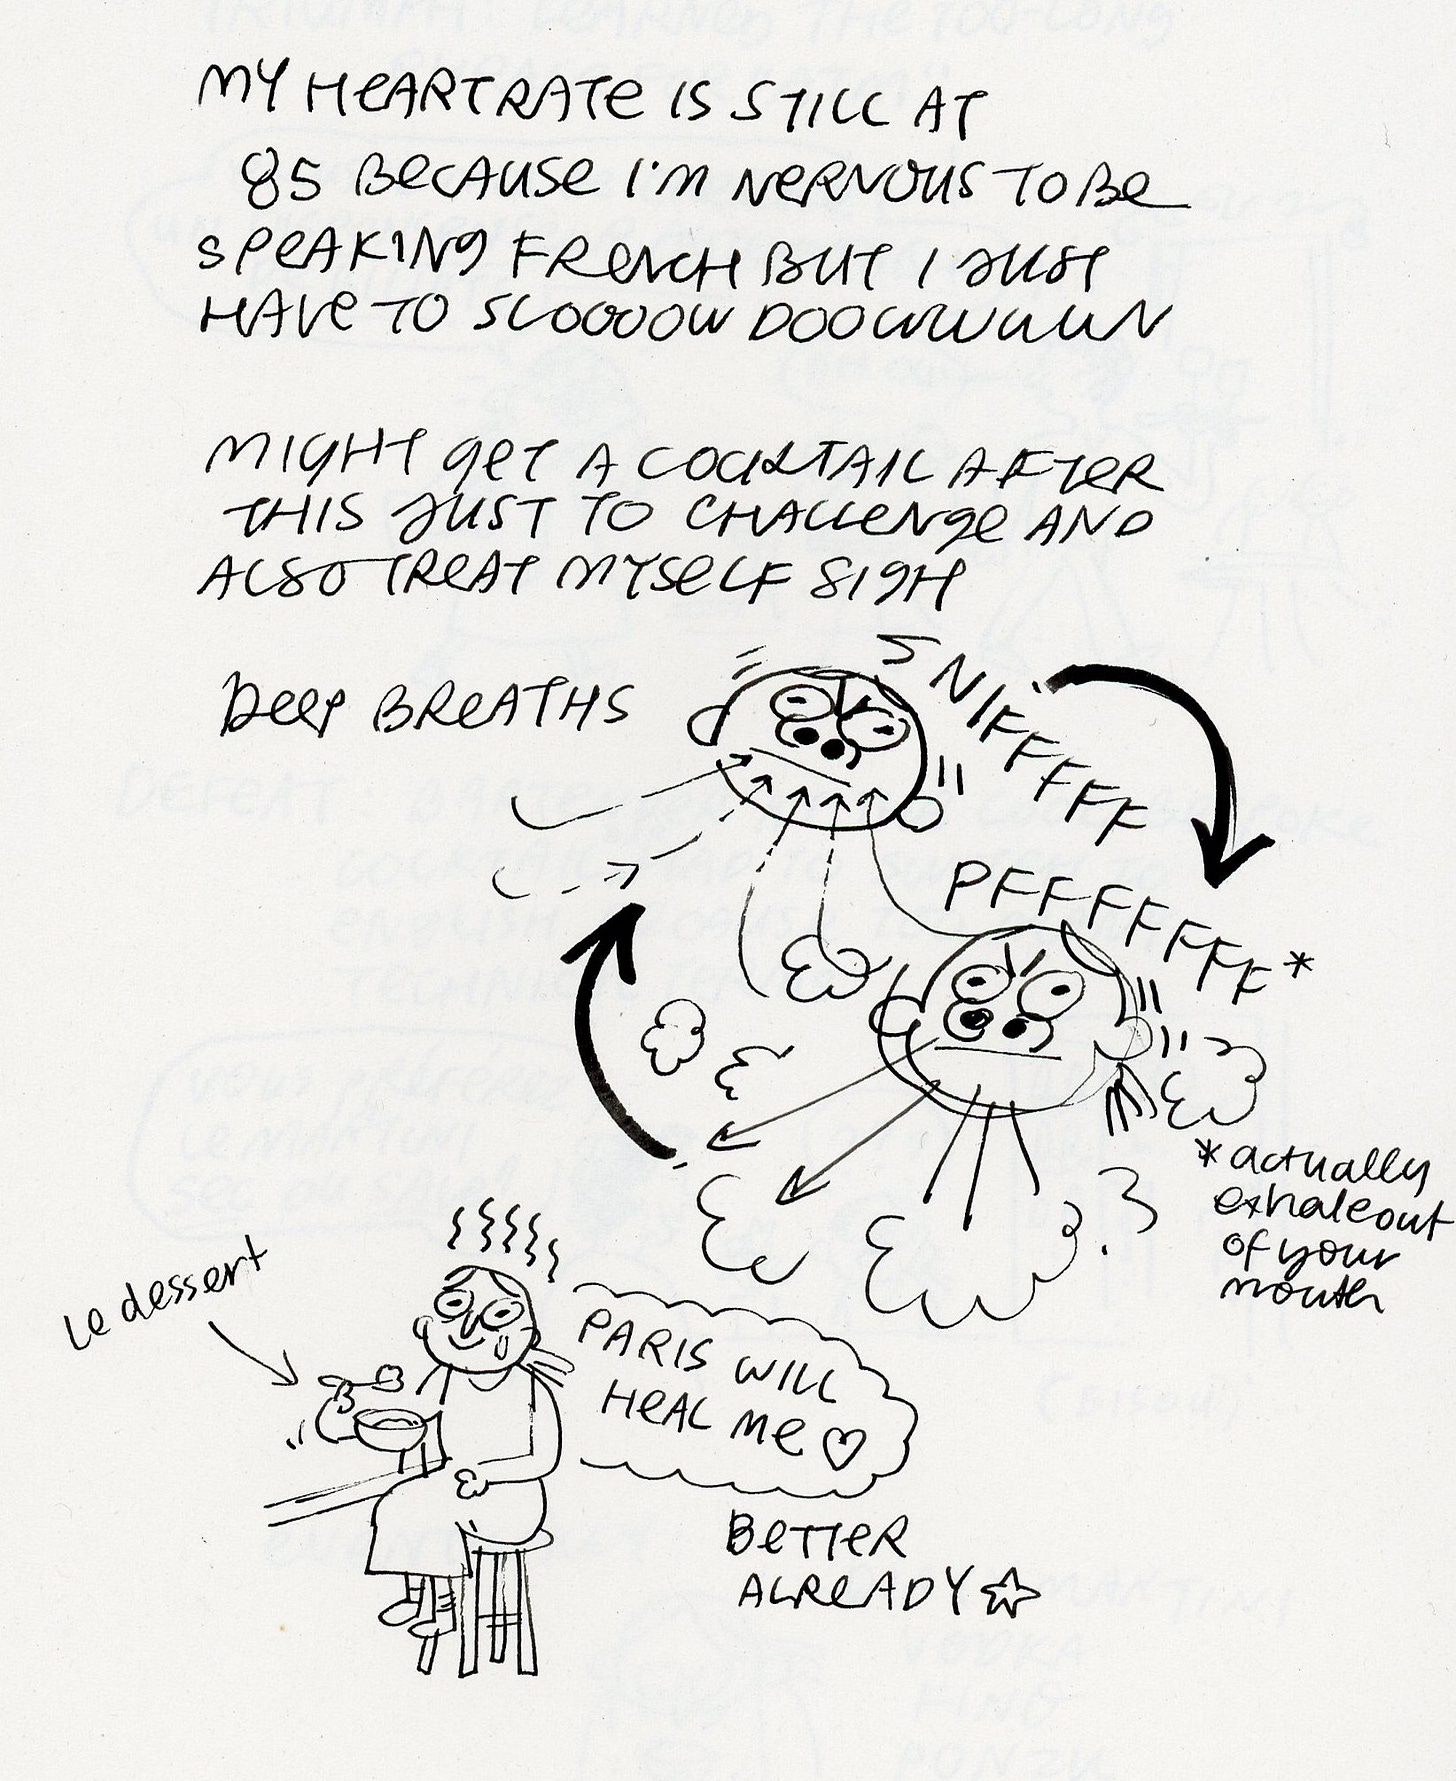 MY HEARTRATE IS STILL AT
85 BECAUSE I'M NERVOUS TO BE
SPEAKING FRENCH BUT I JUST
HAVE TO SLOOOOW DOOWWWUUN
MIGHT GET A COCKTAIL AFTER
THIS JUST TO CHALLENGE AND
ALSO TREAT MYSELF SIGH
DEEP BREATHS
SNIFFFFFFF
PFFFFFFFFF*
*actually
exhale out
of your
mouth
Le dessert
PARIS WILL
HEAL ME ♡
BETTER
ALREADY ☆